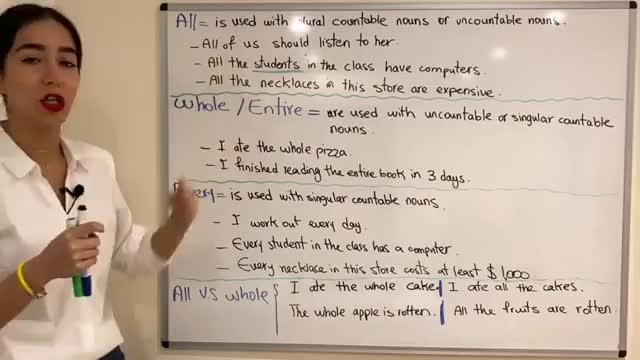 All = is used with plural countable nouns or uncountable nouns.
- All of us should listen to her.
- All the students in the class have computers.
- All the necklaces in this store are expensive.
Whole / Entire = are used with uncountable or singular countable
nouns.
- I ate the whole pizza.
- I finished reading the entire book in 3 days.
Every = is used with singular countable nouns.
- I work out every day.
- Every student in the class has a computer.
- Every necklace in this store costs at least $1,000
All V.S whole
I ate the whole cake. I ate all the cakes.
The whole apple is rotten. All the fruits are rotten.